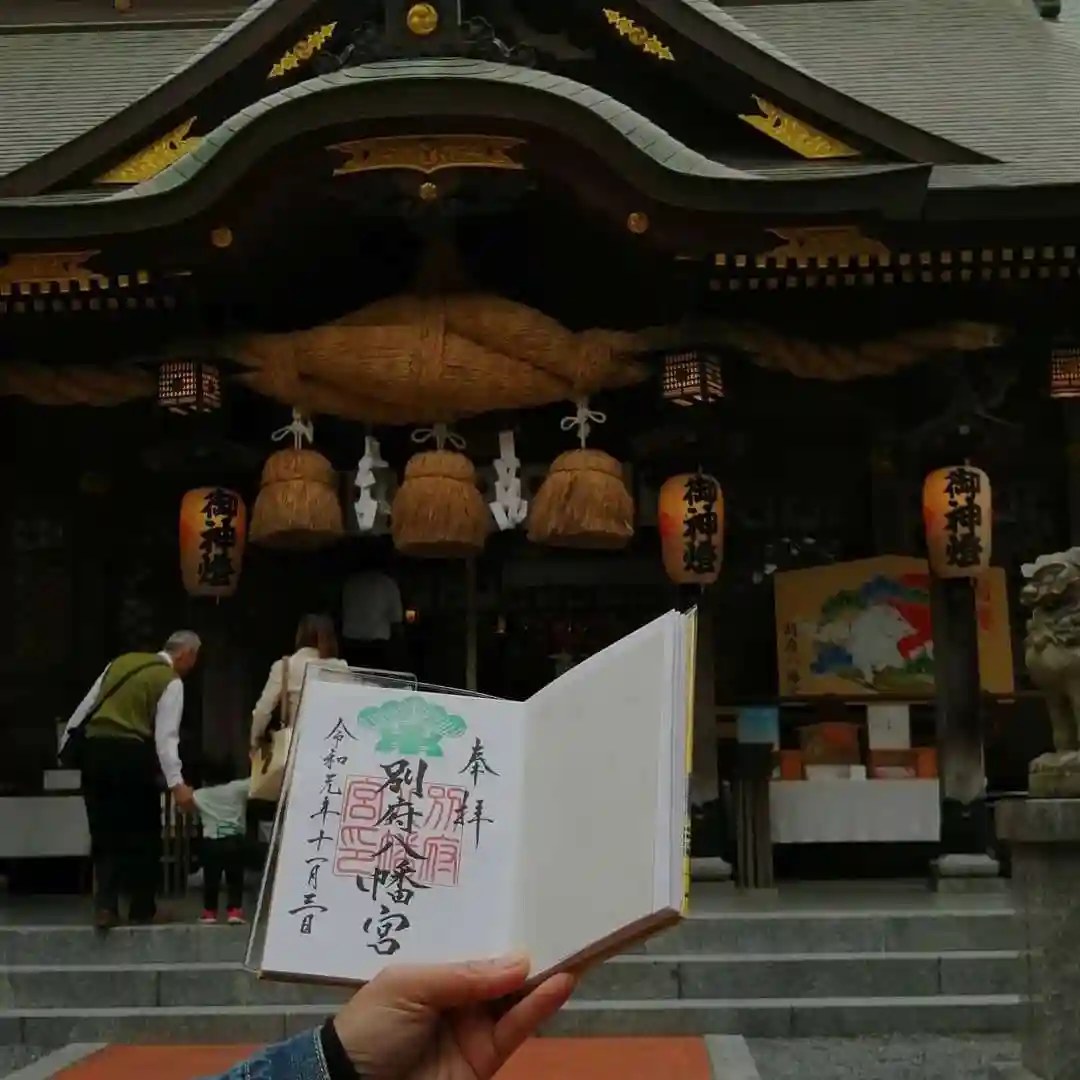 御神燈
御神燈
御神燈
奉拝
別府八幡宮
令和元年十一月三日